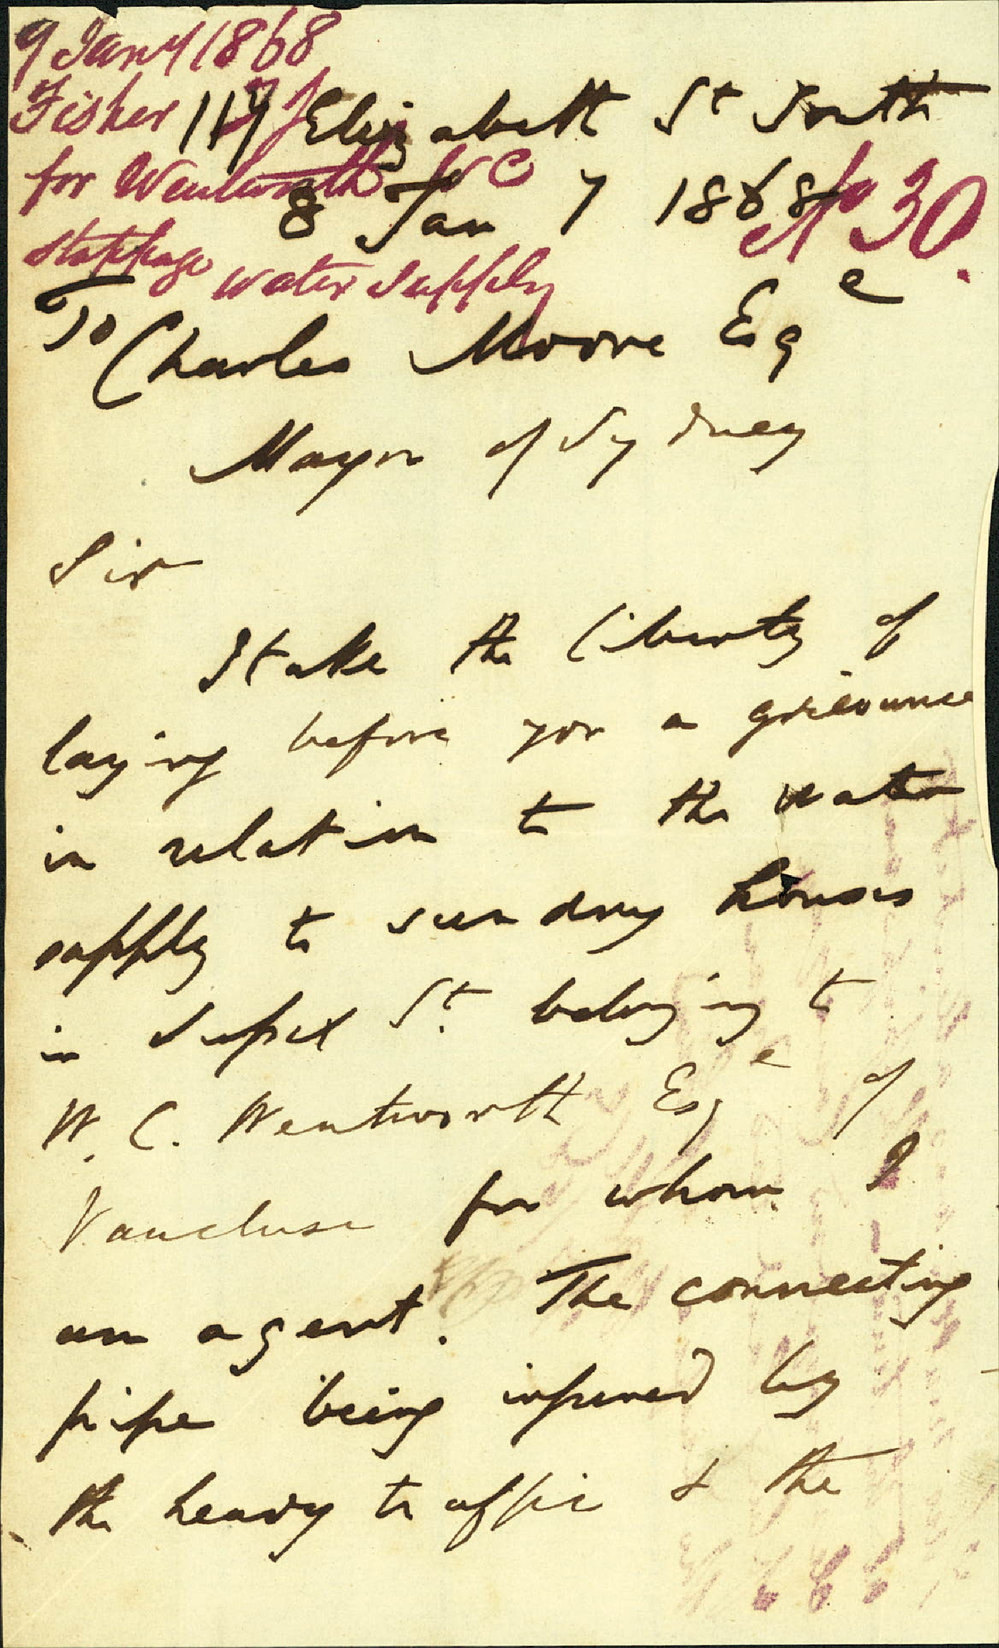 9 Jany 1868
Fisher
for Wentworth WC
stoppage water supply
No 30.
117 Elizabeth St South
8 Jany 1868
To Charles Moore Esqe
Mayor of Sydney
Sir
I take the liberty of
laying before you a grievance
in relation to the water
supply to sundry houses
in Sussex St. belonging to
W. C. Wentworth Esqe of
Vaucluse for whom I
am agent. The connecting
pipe being injured by
the heavy traffic & the